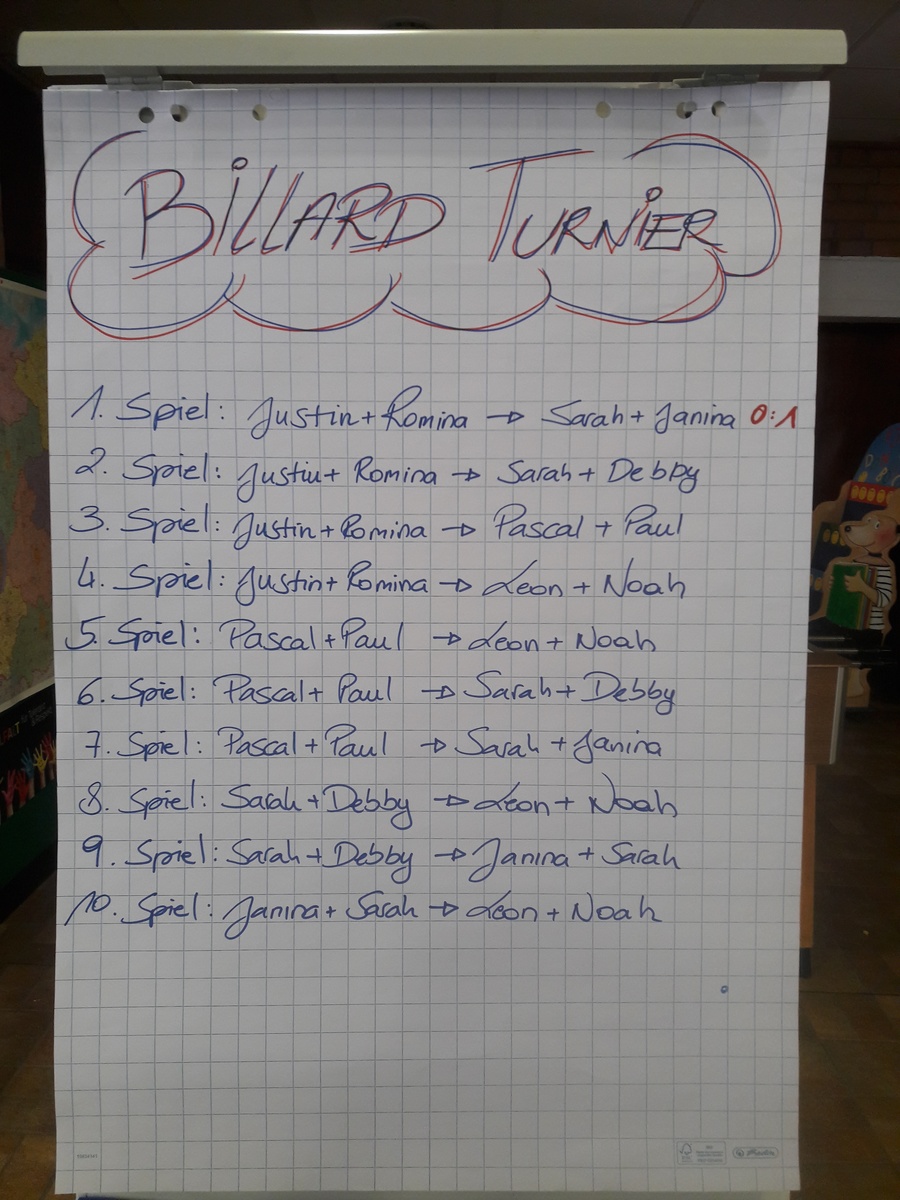 BiLLARD TURNiER
1. Spiel: Justin + Romina → Sarah + Janina 0:1
2. Spiel: Justin + Romina → Sarah + Debby
3. Spiel: Justin + Romina → Pascal + Paul
4. Spiel: Justin + Romina → Leon + Noah
5. Spiel: Pascal + Paul → Leon + Noah
6. Spiel: Pascal + Paul → Sarah + Debby
7. Spiel: Pascal + Paul → Sarah + Janina
8. Spiel: Sarah + Debby → Leon + Noah
9. Spiel: Sarah + Debby → Janina + Sarah
10. Spiel: Janina + Sarah → Leon + Noah